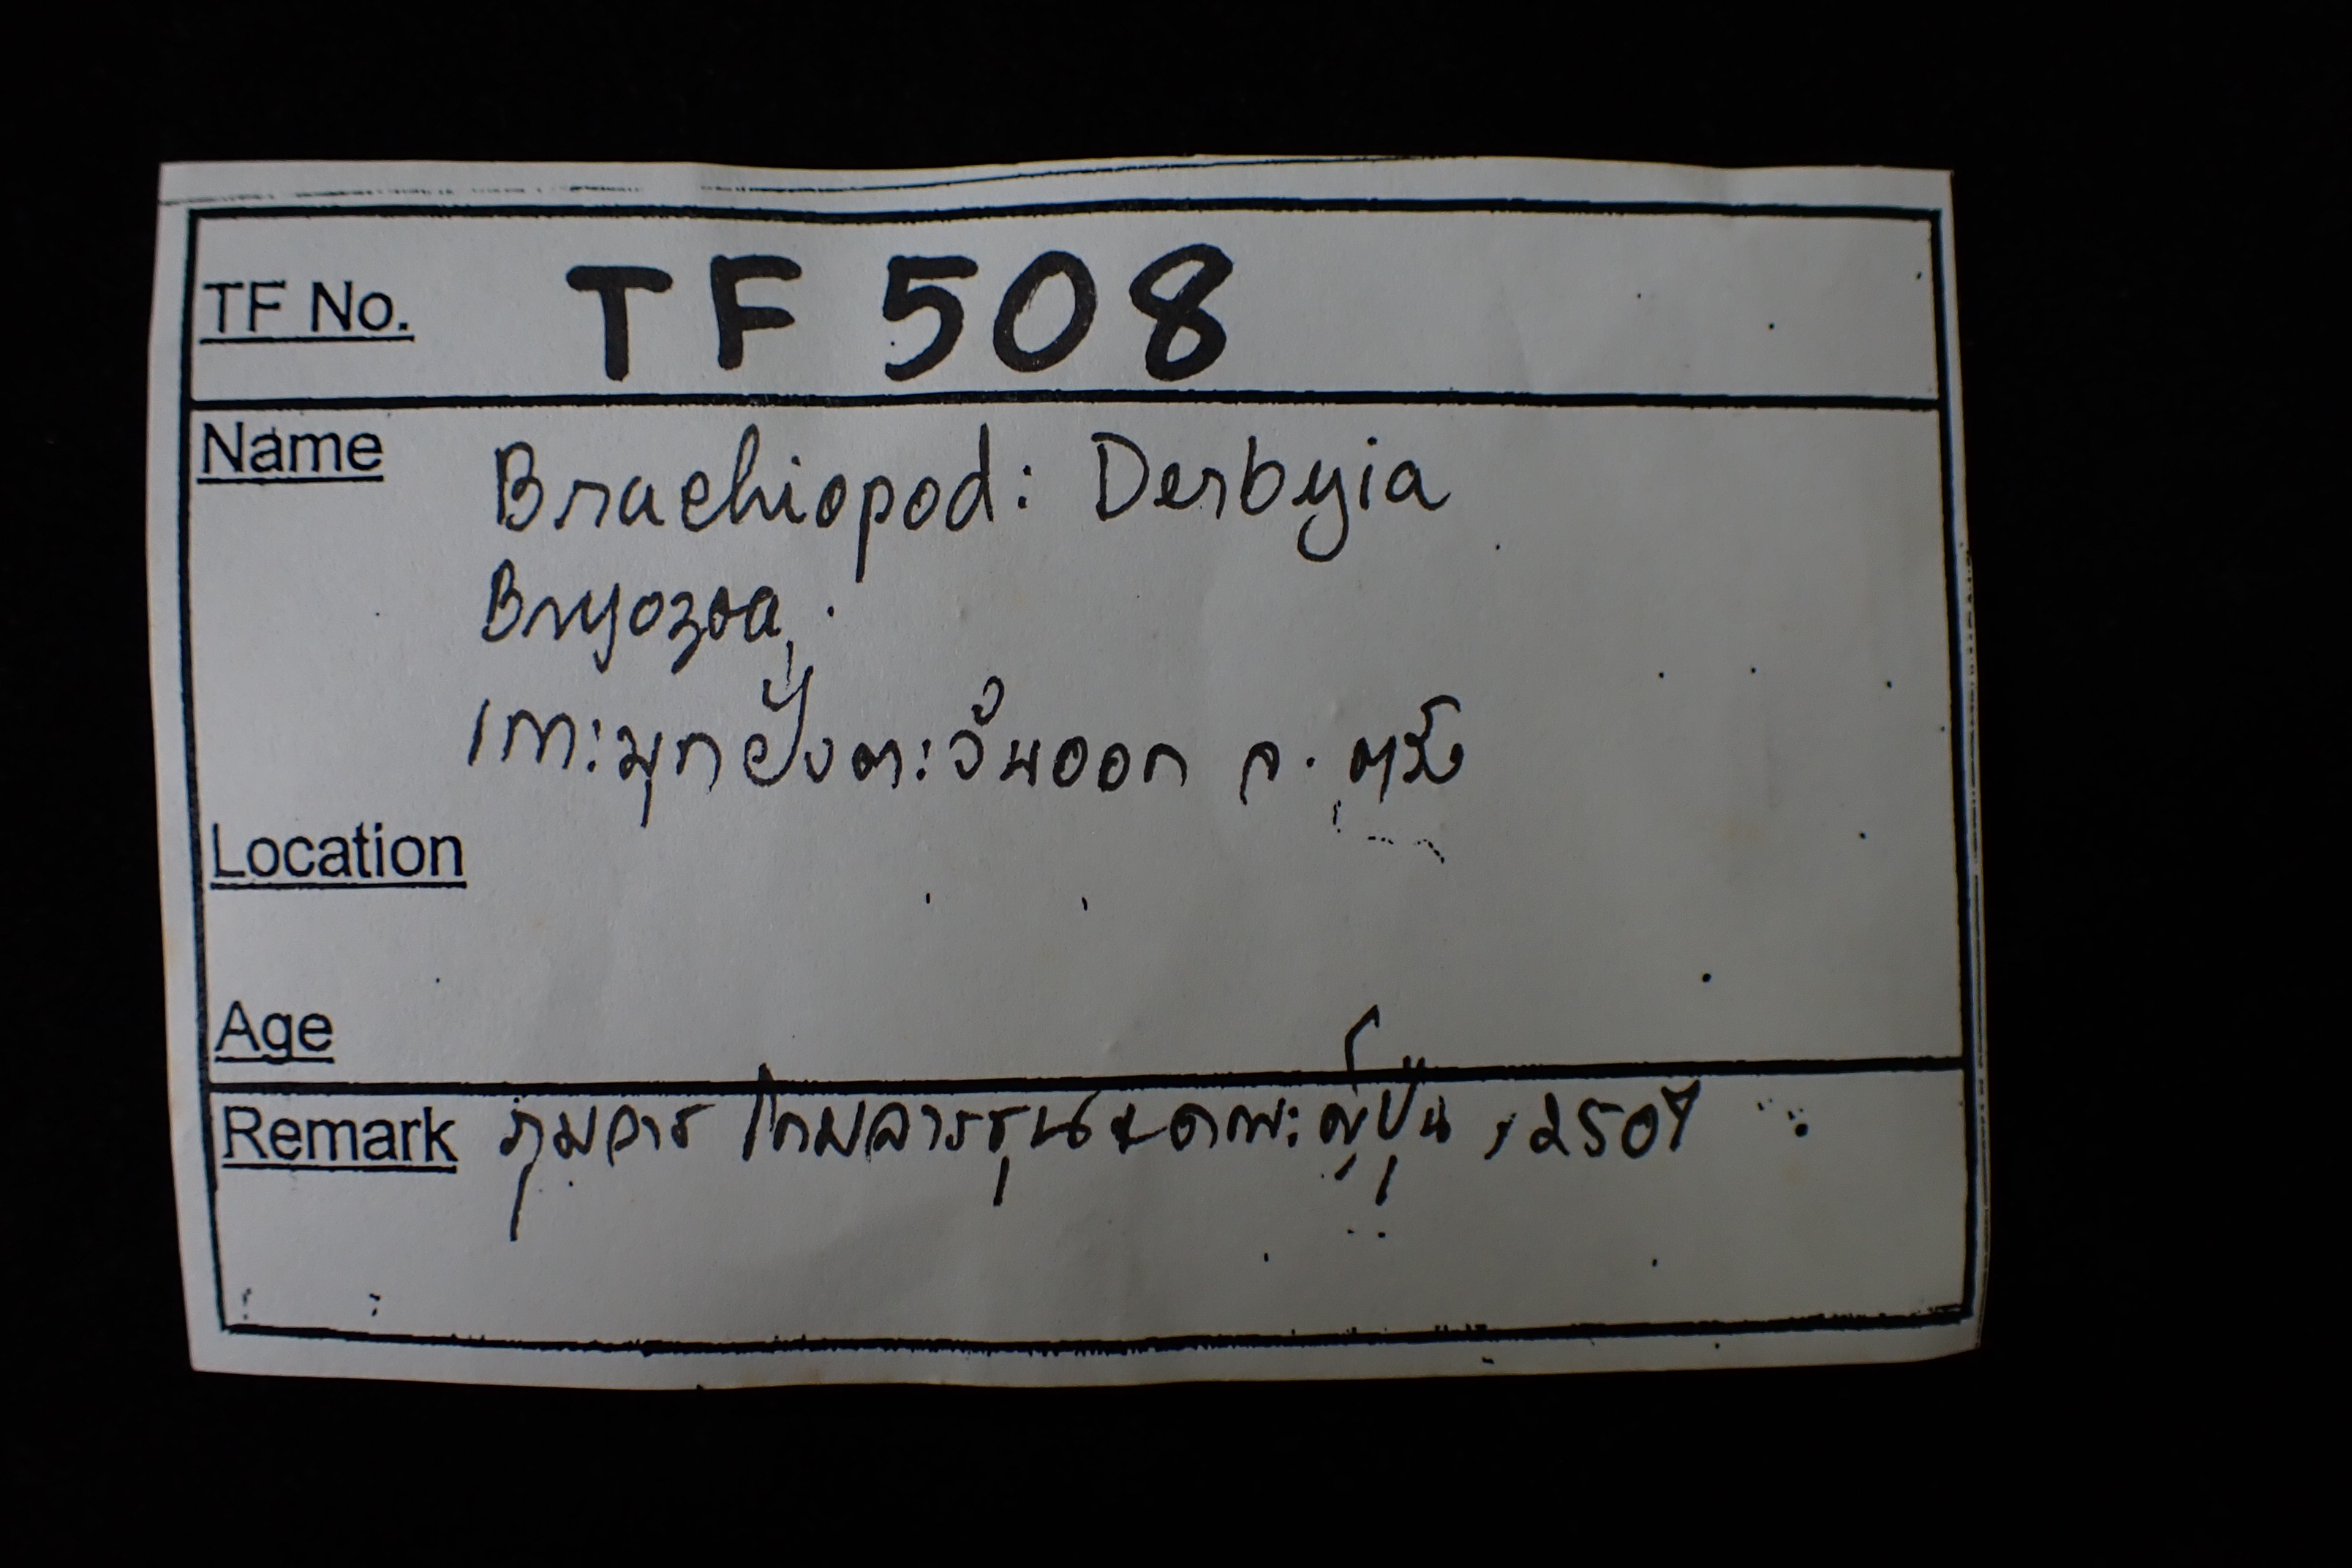 TF No. TF 508
Name Brachiopod: Derbyia
Bryozoa
เกาะมุกฝั่งตะวันออก จ. ตรัง
Location
Age
Remark กุมาร โกมลารชุน & คณะญี่ปุ่น, 2507